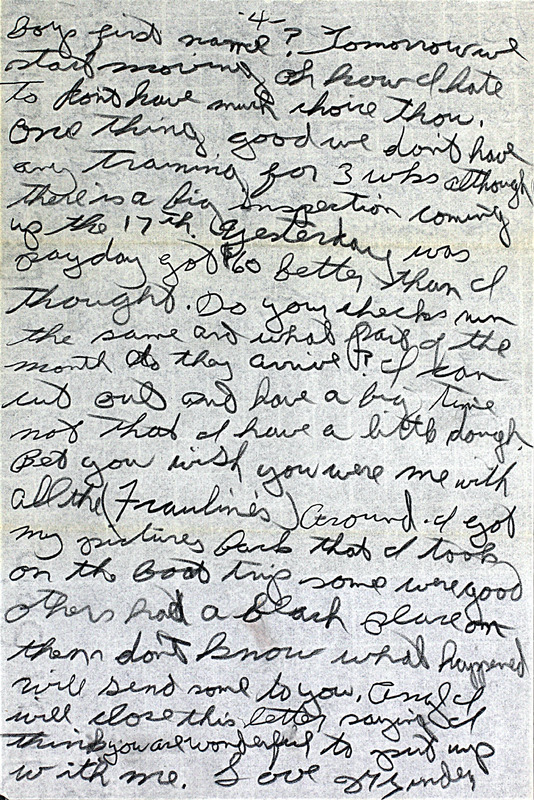 -4-
boys first name? Tomorrow we
start moving oh how I hate
to dont have much choice thou.
One thing good we don't have
any training for 3 wks although
there is a big inspection coming
up the 17th. Yesterday was
payday got $60 better than I
thought. Do your checks run
the same and what part of the
month do they arrive? I can
cut out and have a big time
not that I have a little dough.
Bet you wish you were me with
all the (Frauline's) around. I got
my pictures back that I took
on the boat trip some were good
others had a black place on
them don't know what happened
will send some to you. I
will close this letter saying I
think you are wonderful to put up
with me. Love